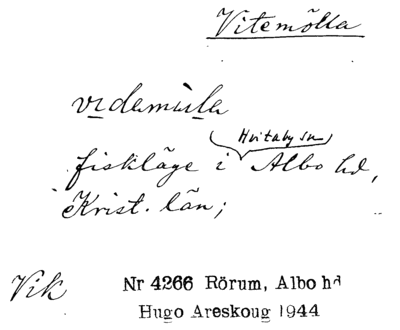 Vitemölla
vidamùla
Hvitaby sn
fiskläge i Albo hd,
Krist. län;
Vik
Nr 4266 Rörum, Albo hd
Hugo Areskoug 1944